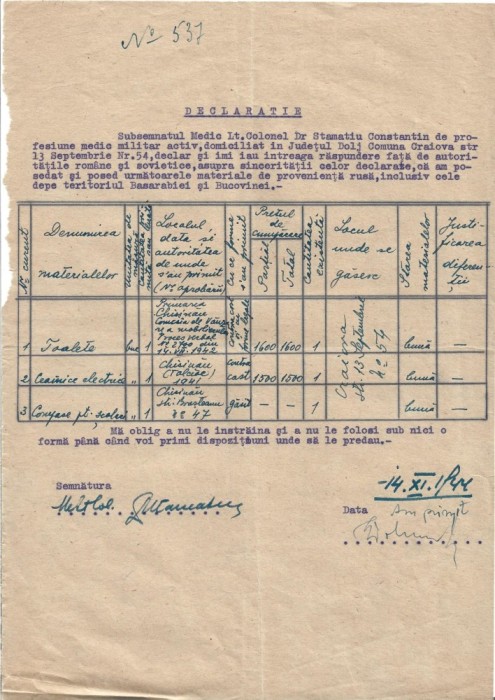 No 537
DECLARATIE
Subsemnatul Medic Lt.Colonel Dr Stamatiu Constantin de pro-
fesiune medic militar activ,domiciliat in Județul Dolj Comuna Craiova str
13 Septembrie Nr.54,declar și imi iau intreaga răspundere față de autori-
tățile române și sovietice,asupra sincerității celor declarate,că am po-
sedat și posed următoarele materiale de proveniență rusă,inclusiv cele
depe teritoriul Basarabiei și Bucovinei.-
No curent
Denumirea materialelor
Unitatea de măsură
Cantitatea
Localul, data și autoritatea de unde s'au primit (No aprobării)
Cu ce forme s'au primit
Prețul de cumpărare
Parțial
Total
Cantitatea existentă
Locul unde se găsesc
Starea materialelor
Justificarea diferenței
1 Toalete buc 1 Primăria Chișinău Comisia de Vânzare a mobilierului Proces verbal No 2700 din 14.VII.1942 1600 1600 1 Craiova Str. 13 Septembrie No 54 bună —
2 Ceainice electrice " 1 Chișinău 1941 contra cost 1500 1500 1 bună —
3 " 1 Chișinău Str. No 47 găsit — 1 bună —
Mă oblig a nu le instrăina și a nu le folosi sub nici o
formă până când voi primi dispozițiuni unde să le predau.-
Semnătura
-14.XI.1944
Data Am primit